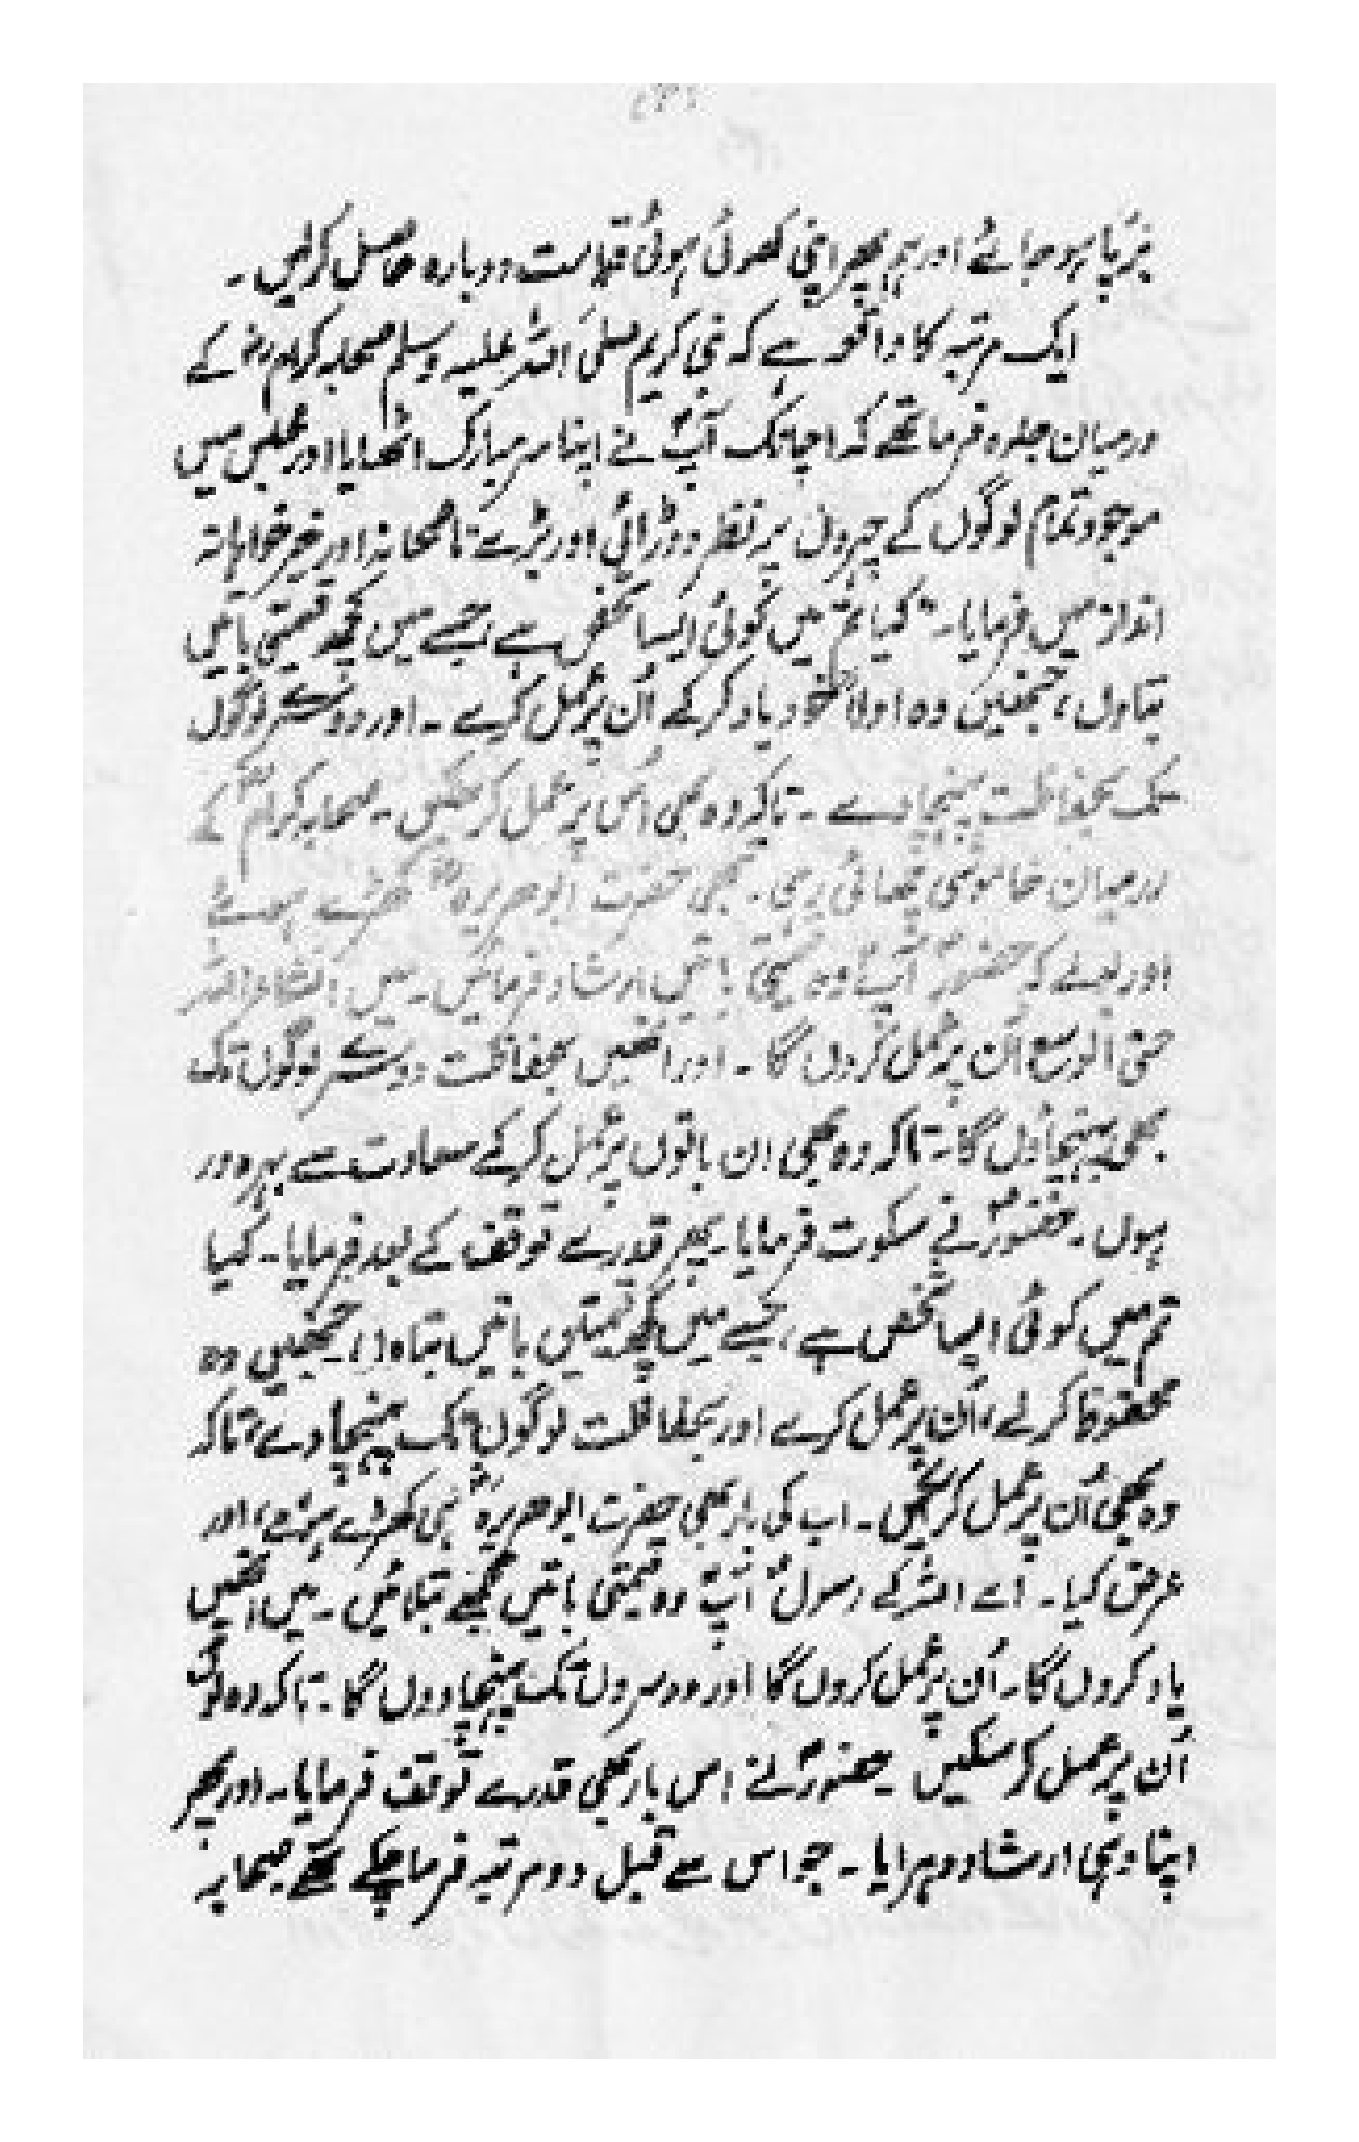 برپا ہو جائے اور ہم پھر اپنی کھوئی ہوئی قیادت دوبارہ حاصل کرلیں۔
ایک مرتبہ کا واقعہ ہے کہ نبی کریم صلی اللہ علیہ وسلم صحابہ کرام رضؓ کے
درمیان جلوہ فرما تھے کہ اچانک آپؐ نے اپنا سر مبارک اٹھایا اور مجلس میں
موجود تمام لوگوں کے چہروں پر نظر دوڑائی اور بڑے ناصحانہ اور خیر خواہانہ
انداز میں فرمایا۔ "کیا تم میں کوئی ایسا شخص ہے جسے میں کچھ قیمتی باتیں
بتاؤں، جنھیں وہ اولاً خود یاد کر کے اُن پر عمل کرے۔ اور دوسرے لوگوں
تک بحفاظت پہنچا دے۔ تاکہ وہ بھی اُس پر عمل کر سکیں۔ صحابہ کرامؓ کے
درمیان خاموشی چھائی رہی۔ تبھی حضرت ابوھریرہؓ کھڑے ہوئے
اور بولے کہ حضورؐ آپؐ وہ قیمتی باتیں ارشاد فرمائیں۔ میں انشاء اللہ
حتی الوسع اُن پر عمل کروں گا۔ اور انھیں بحفاظت دوسرے لوگوں تک
بھی پہنچاؤں گا۔ تاکہ وہ بھی ان باتوں پر عمل کر کے سعادت سے بہرہ ور
ہوں۔ حضورؐ نے سکوت فرمایا۔ پھر قدرے توقف کے بعد فرمایا۔ کیا
تم میں کوئی ایسا شخص ہے، جسے میں کچھ قیمتی باتیں بتاؤں، جنھیں وہ
محفوظ کر لے، اُن پر عمل کرے اور بحفاظت لوگوں تک پہنچا دے، تاکہ
وہ بھی اُن پر عمل کر سکیں۔ اب کی بار بھی حضرت ابوھریرہؓ ہی کھڑے ہوئے، اور
عرض کیا۔ اے اللہ کے رسولؐ آپؐ وہ قیمتی باتیں مجھے بتائیں۔ میں انھیں
یاد کروں گا۔ اُن پر عمل کروں گا اور دوسروں تک پہنچا دوں گا۔ تاکہ وہ لوگ
اُن پر عمل کر سکیں۔ حضورؐ نے اس بار بھی قدرے توقف فرمایا۔ اور پھر
اپنا وہی ارشاد دہرایا۔ جو اس سے قبل دو مرتبہ فرما چکے تھے صحابہ